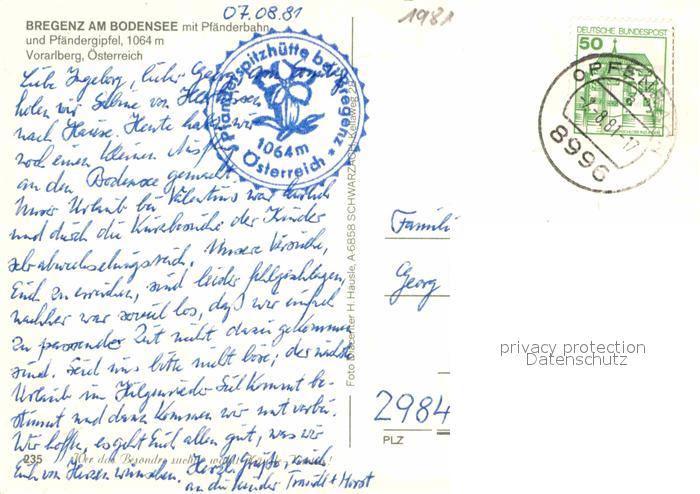 07.08.81
1981
BREGENZ AM BODENSEE mit Pfänderbahn
und Pfändergipfel, 1064 m
Vorarlberg, Österreich
Pfänderspitzhütte bei Bregenz
1064 m
Österreich
DEUTSCHE BUNDESPOST
50
OPFENBACH
8.81.17
8996
Liebe Ingeborg, lieber Georg,
holen wir Sabine von
nach Hause. Heute haben wir
noch einen kleinen Ausflug
an den Bodensee gemacht.
Unser Urlaub bei Valentins war herrlich
und durch die Kurzbesuche der Kinder
sehr abwechselungsreich. Unsere Versuche,
Euch zu erreichen, sind leider fehlgeschlagen,
nachher war soviel los, daß wir einfach
zu passender Zeit nicht dazu gekommen
sind. Seid uns bitte nicht böse; der nächste
Urlaub im Kommt be-
stimmt und dann kommen wir mit vorbei.
Wir hoffen, es geht Euch allen gut, was wir
Euch von Herzen wünschen. Herzl. Grüße, auch
an die Kinder Traudl + Horst
235
Wer das Besondre sucht,
Foto Dia-Center H. Häusle, A-6858 SCHWARZACH, Kellaweg
Famili
Georg
2984
PLZ
privacy protection
Datenschutz